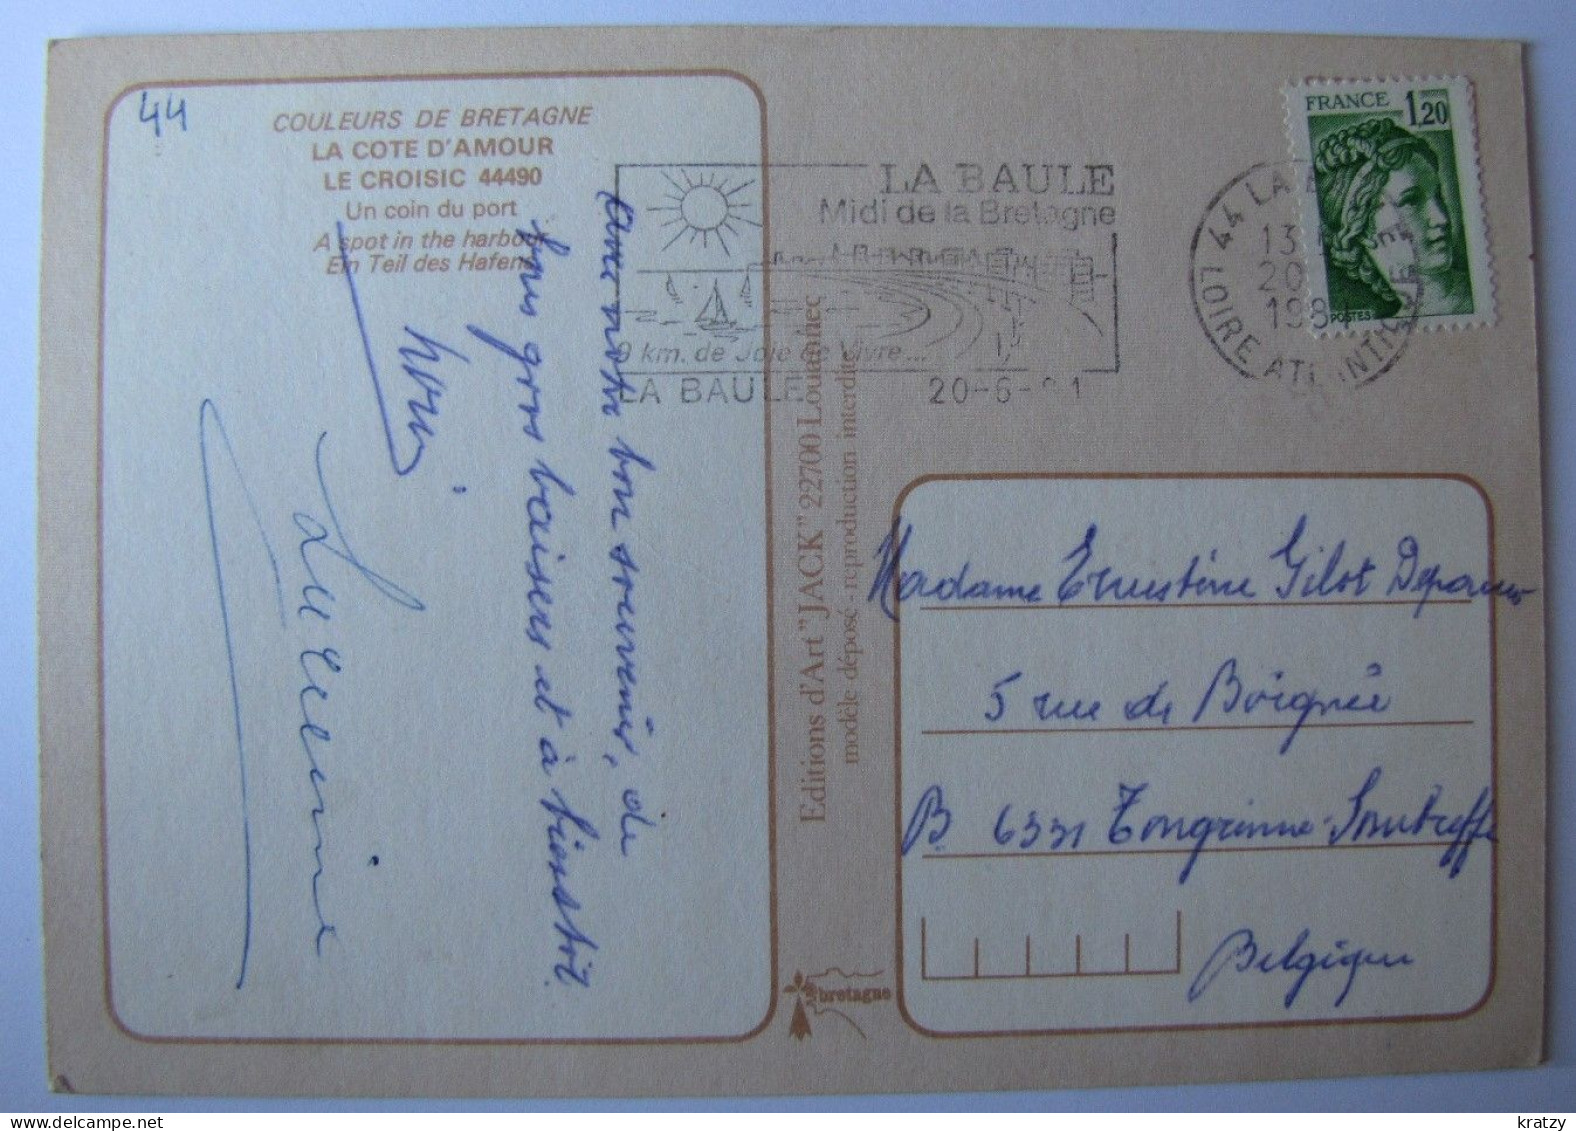 44
COULEURS DE BRETAGNE
LA COTE D'AMOUR
LE CROISIC 44490
Un coin du port
A spot in the harbour
Ein Teil des Hafens
bon souvenir, de
gros baisers et à bientôt
Lucienne
Editions d'Art "JACK" 22700 Louannec
modèle déposé - reproduction interdite
bretagne
LA BAULE
Midi de la Bretagne
9 km. de Joie de Vivre...
LA BAULE 20-6-81
44 LA
13
20
1981
LOIRE ATLANTIQUE
FRANCE 1,20
POSTES
Madame Ernestine Gilot
5 rue de Boignée
B. 6331 Tongrinne-Sombreffe
Belgique
kratzy